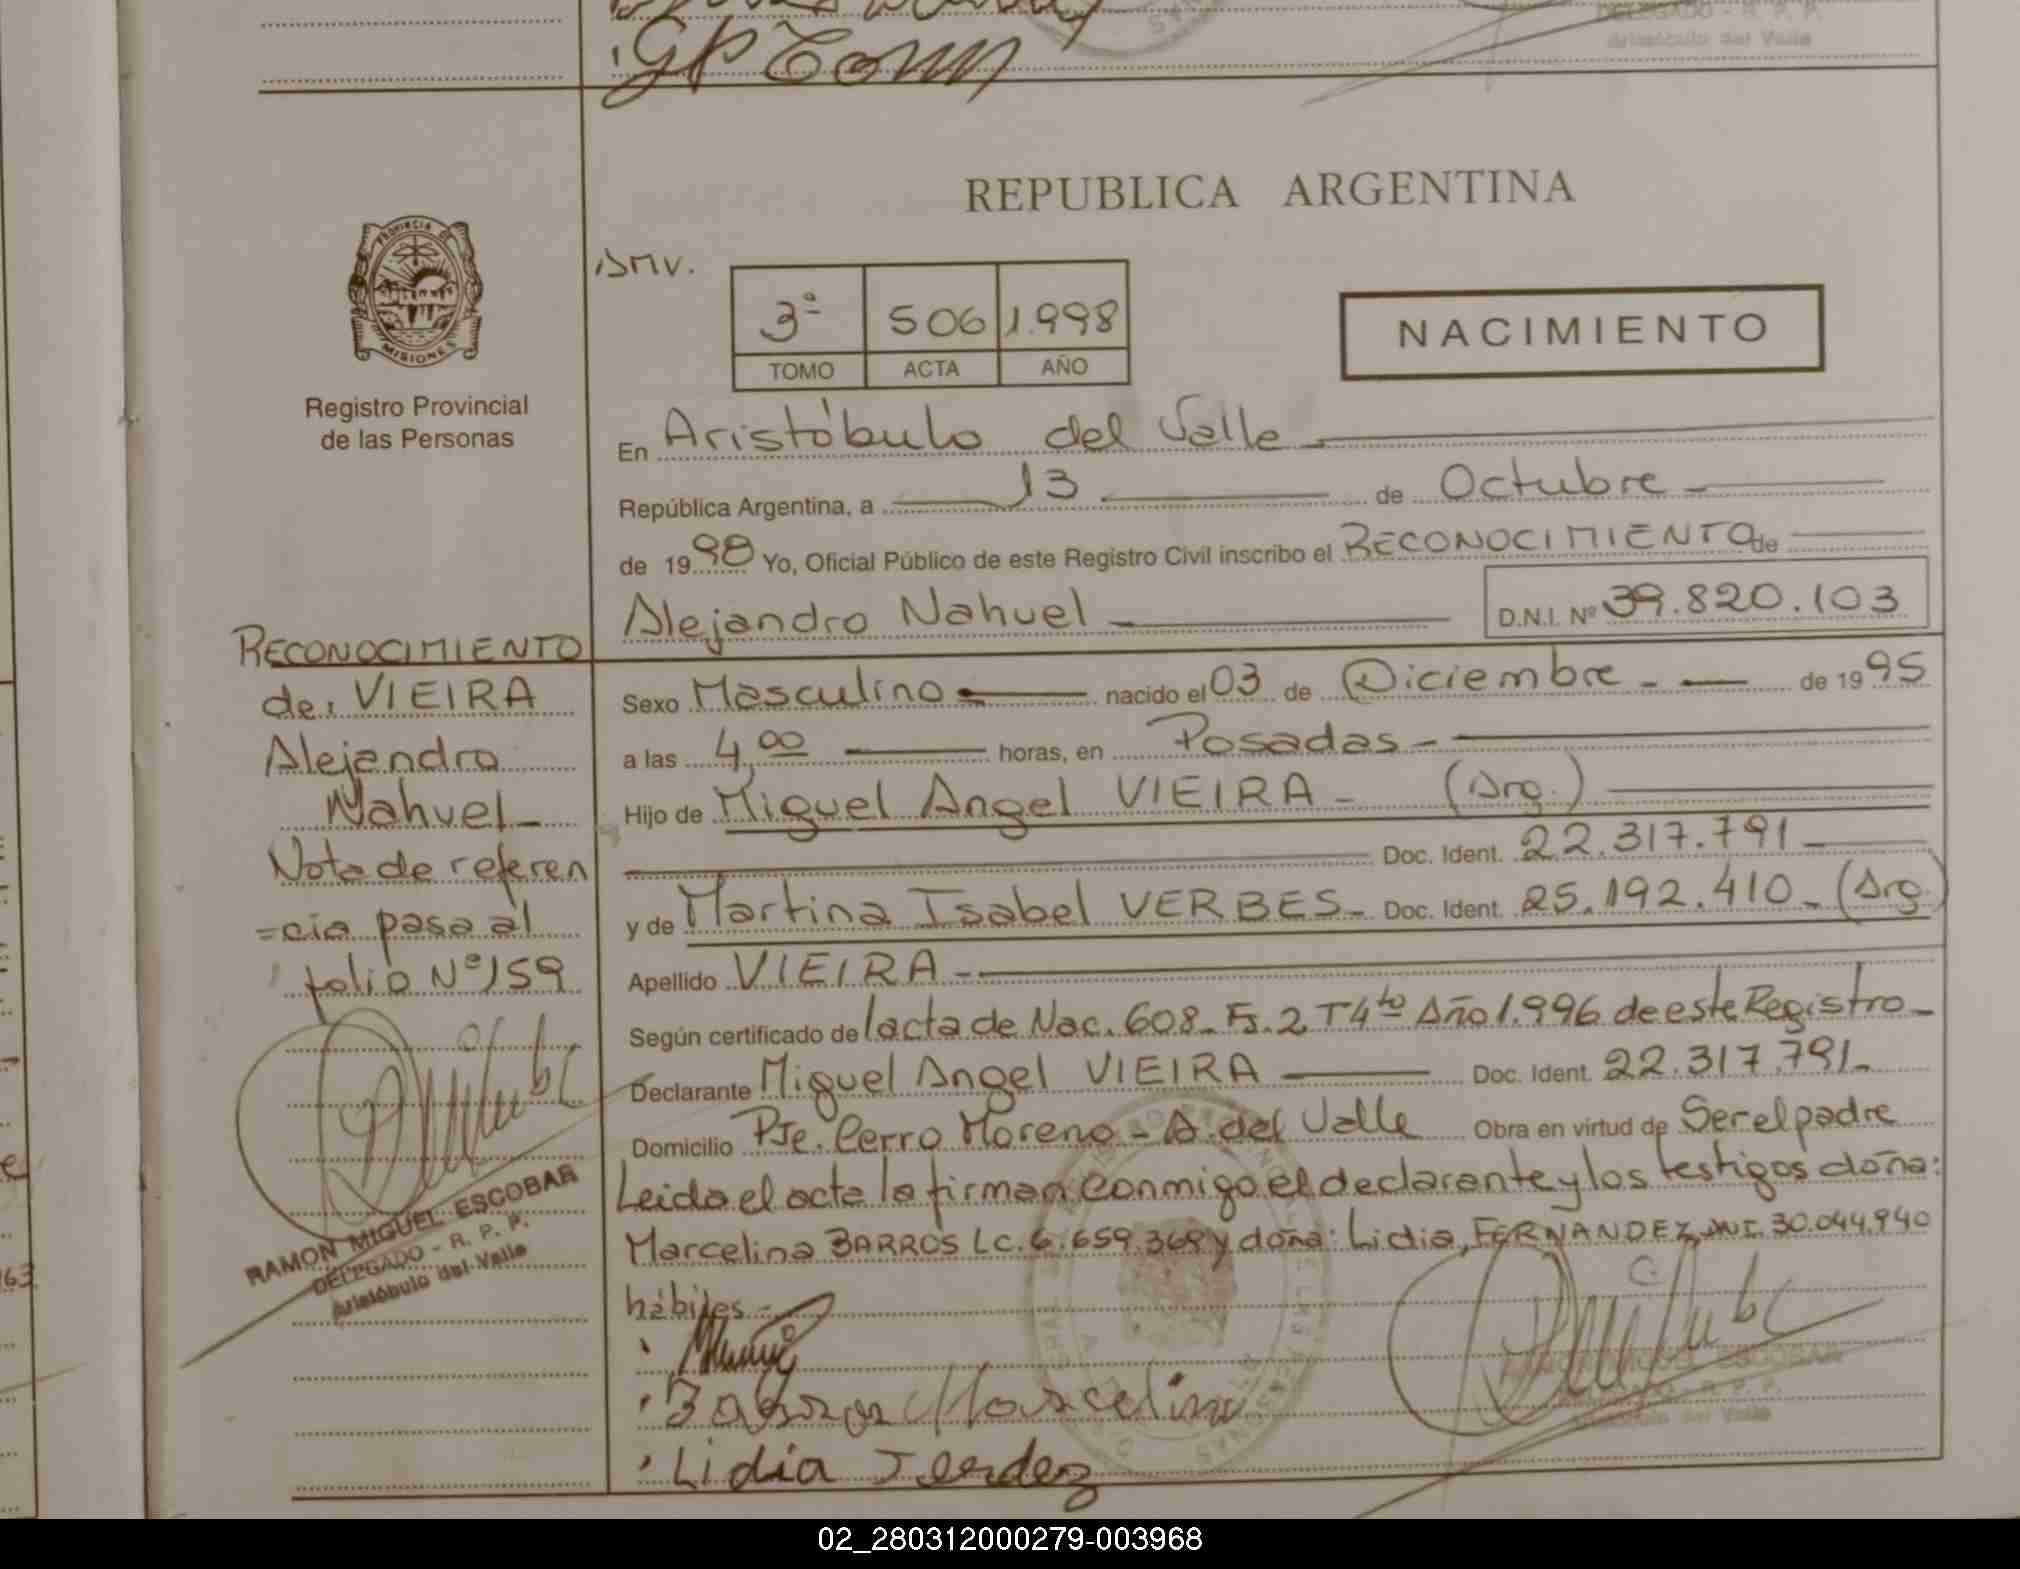 DELEGADO - R. P. P.
Aristóbulo del Valle
REPUBLICA ARGENTINA
PROVINCIA DE
MISIONES
Registro Provincial
de las Personas
3ª 506 1.998
TOMO ACTA AÑO
NACIMIENTO
En Aristóbulo del Valle
República Argentina, a 13 de Octubre
de 1998 Yo, Oficial Público de este Registro Civil inscribo el RECONOCIMIENTO de
Alejandro Nahuel D.N.I. Nº 39.820.103
RECONOCIMIENTO
de: VIEIRA
Alejandro
Nahuel
Nota de referen
=cia pasa al
folio Nº 159
RAMON MIGUEL ESCOBAR
DELEGADO - R. P. P.
Aristóbulo del Valle
Sexo Masculino nacido el 03 de Diciembre de 1995
a las 4,00 horas, en Posadas
Hijo de Miguel Angel VIEIRA (Arg.)
Doc. Ident. 22.317.791
y de Martina Isabel VERBES Doc. Ident. 25.192.410 (Arg)
Apellido VIEIRA
Según certificado de lacta de Nac. 608 Fs. 2 T 4to Año 1.996 de este Registro
Declarante Miguel Angel VIEIRA Doc. Ident. 22.317.791
Domicilio Pje. Cerro Moreno - A. del Valle Obra en virtud de Ser el padre
Leida el acta la firman conmigo el declarante y los testigos doña:
Marcelina BARROS LC. 6.659.369 y doña: Lidia, FERNANDEZ, DNI. 30.044.940
hábiles
Marcelina
Lidia
RAMON MIGUEL ESCOBAR
DELEGADO - R. P. P.
Aristóbulo del Valle
02_280312000279-003968